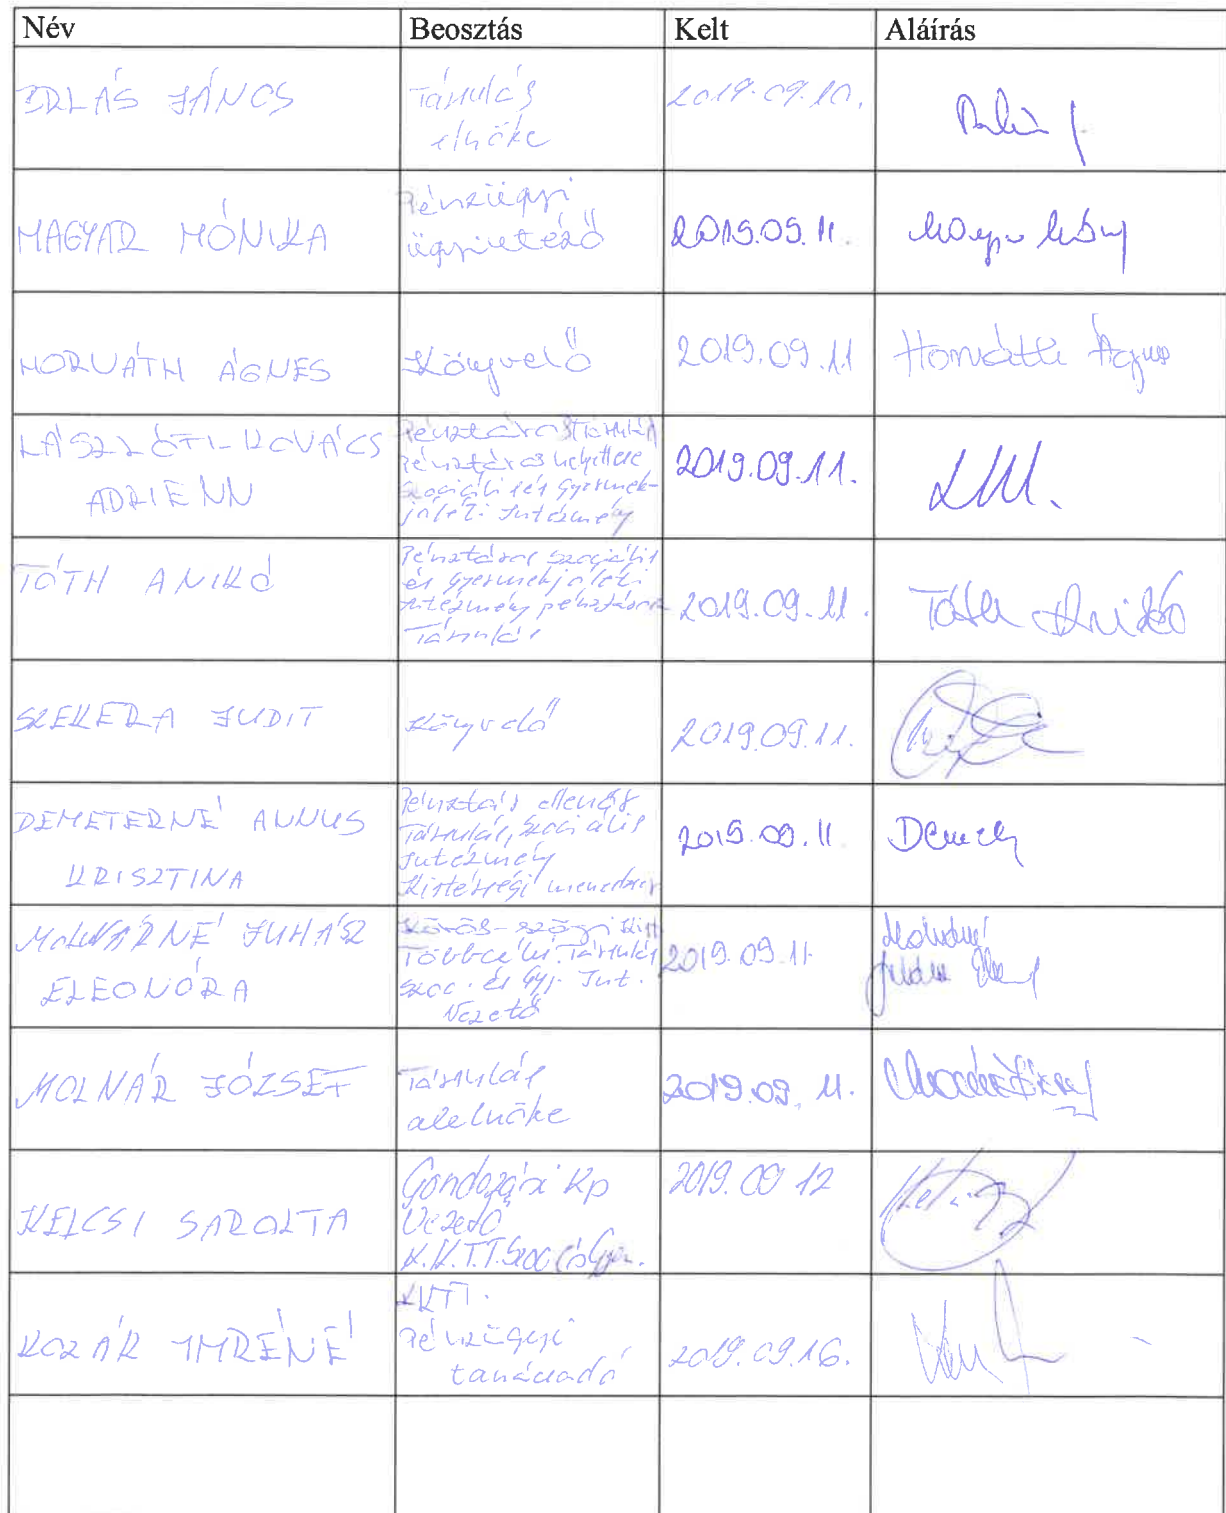 Név Beosztás Kelt Aláírás
JÁNOS Társulás elnöke 2019.09.10.
MAGYAR MÓNIKA Pénzügyi ügyintéző 2019.09.11.
HORVÁTH ÁGNES Könyvelő 2019.09.11 Horváth Ágnes
LÁSZLÓTI-KOVÁCS
ADRIENN
Pénztáros Társulás
Pénztáros helyettese
Szociális és Gyermek-
jóléti Intézmény
2019.09.11.
TÓTH ANIKÓ
Pénztáros Szociális
és Gyermekjóléti
Intézmény pénztáros
Társulás
2019.09.11. Tóth Anikó
SZEKERA JUDIT Könyvelő 2019.09.11.
DEMETERNÉ ANNUS
KRISZTINA
Pénztár ellenőr
Társulás, Szociális
Intézmény
Kistérségi menedzser
2019.09.11
MOLNÁRNÉ JUHÁSZ
ELEONÓRA
Körös-szögi Kist.
Többcélú Társulás
Szoc. és Gyj. Int.
Vezető
2019.09.11. Molnárné
MOLNÁR JÓZSEF
Társulás
alelnöke
2019.09.11.
KELCSI SAROLTA
Gondozási Kp
Vezető
K.K.T.T. Szoc és Gyer.
2019.09 12
KOZÁR IMRÉNÉ
KKTT.
Pénzügyi
tanácsadó
2019.09.16.